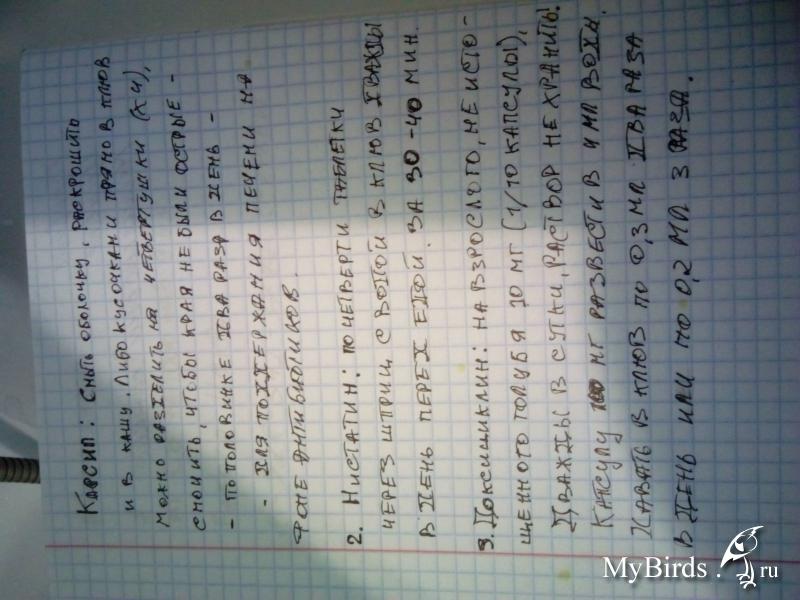 Карсил: снять оболочку, раскрошить
и в кашу. Либо кусочками прямо в клюв
можно разделить на четвертушки (х4),
смочить, чтобы края не были острые -
- по половинке два раза в день -
- для поддержания печени на
фоне антибиотиков.
2. Нистатин: по четверти таблетки
через шприц с водой в клюв дважды
в день перед едой. за 30-40 мин.
3. Доксициклин: на взрослого, не исто-
щенного голубя 10 мг (1/10 капсулы),
дважды в сутки, раствор не хранить!
Капсулу 100 мг развести в 4 мл воды.
Давать в клюв по 0,3 мл два раза
в день или по 0,2 мл 3 раза.
MyBirds.ru